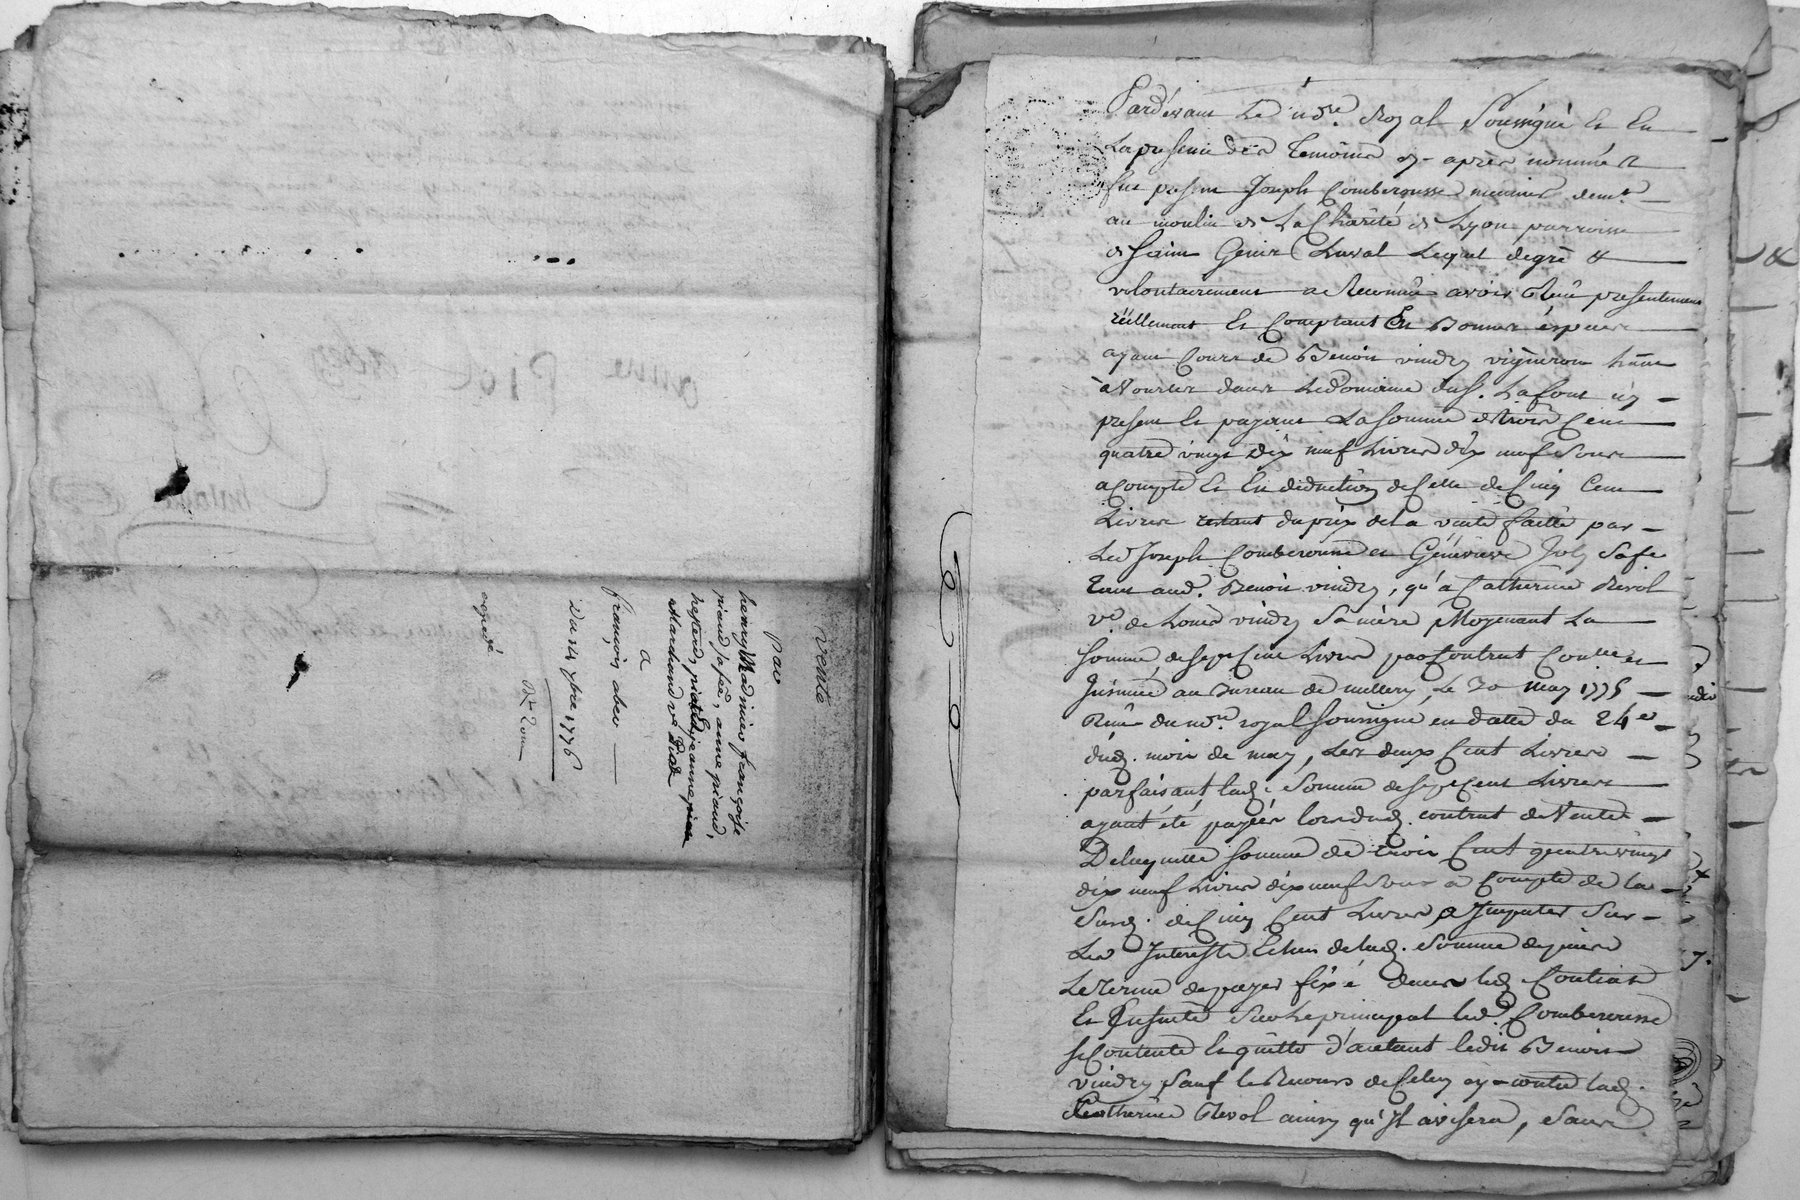 vente
par
henry Madinier françoise
piaud sa fee, anne piaud,
&
Marchand ve Piod
a
françois abes
Du 14 7bre 1776
expedié
Pardevant Le nore Royal Soussigné Et En
La presence des Temoins cy-après nommés
fut present Joseph Comberousse meunier demt
au moulin de La Charité de Lyon parroisse
de saint Genis Laval Lequel degré &
volontairement a Reconnu avoir Reçu presentement
réellement Et Comptant En Bonnes éspeces
ayant Cours de Benoit vindry vigneron
à Vourles dans Le Domaine du S. Lafont icy
present Et payant La somme de trois Cent
quatre vingt Dix neuf Livres dix neuf Sous
a Compte Et En deduction de Celle de Cinq Cent
Livres restant du prix de La vente faitte par
Led Joseph Comberousse et Génévieve Joly Sa fe
tant aud. Benoit vindry, qu'a Catherine Revol
ve de Louis vindry Sa mère Moyenant La
Somme de sept Cent Livres par Contrat Conlle et
Insinué au Bureau de millery, Le 30 may 1775
Reçu du nore royal soussigné en datte du 24e
dud. mois de may, Les deux Cent Livres
parfaisant lad. Somme de sept Cent Livres
ayant été payées lors dud. contrat de Vente
De laquelle somme de trois Cent quatre vingt
dix neuf Livres dix neuf Sous a Compte de la
Susd. de Cinq Cent Livres a Imputer Sur
Les Interests Echus de lad. Somme depuis
Le Terme de payer fixé dans led Contrat
Et Ensuite Sur Le principal led. Comberousse
se Contente Et quitte d'autant ledit Benoit
vindry Sauf le Recours de Celuy cy contre lad.
Catherine Revol ainsy qu'Il avisera, Sans